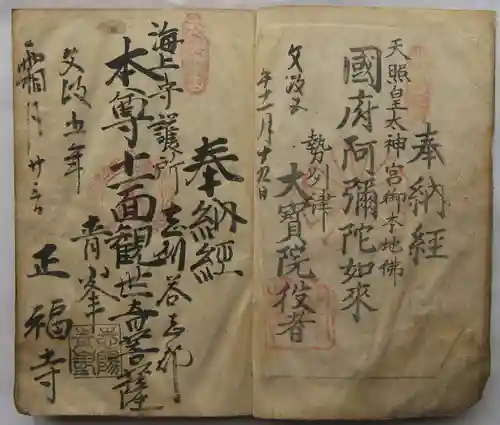 奉納經
天照皇太神宮御本地佛
國府阿彌陀如來
勢州津
大寳院役者
文政五
年十一月十九日
奉納經
海上守護所
志州答志郡
本尊十一面観世音菩薩
青峯
正福寺
文政五年
霜月廿三日